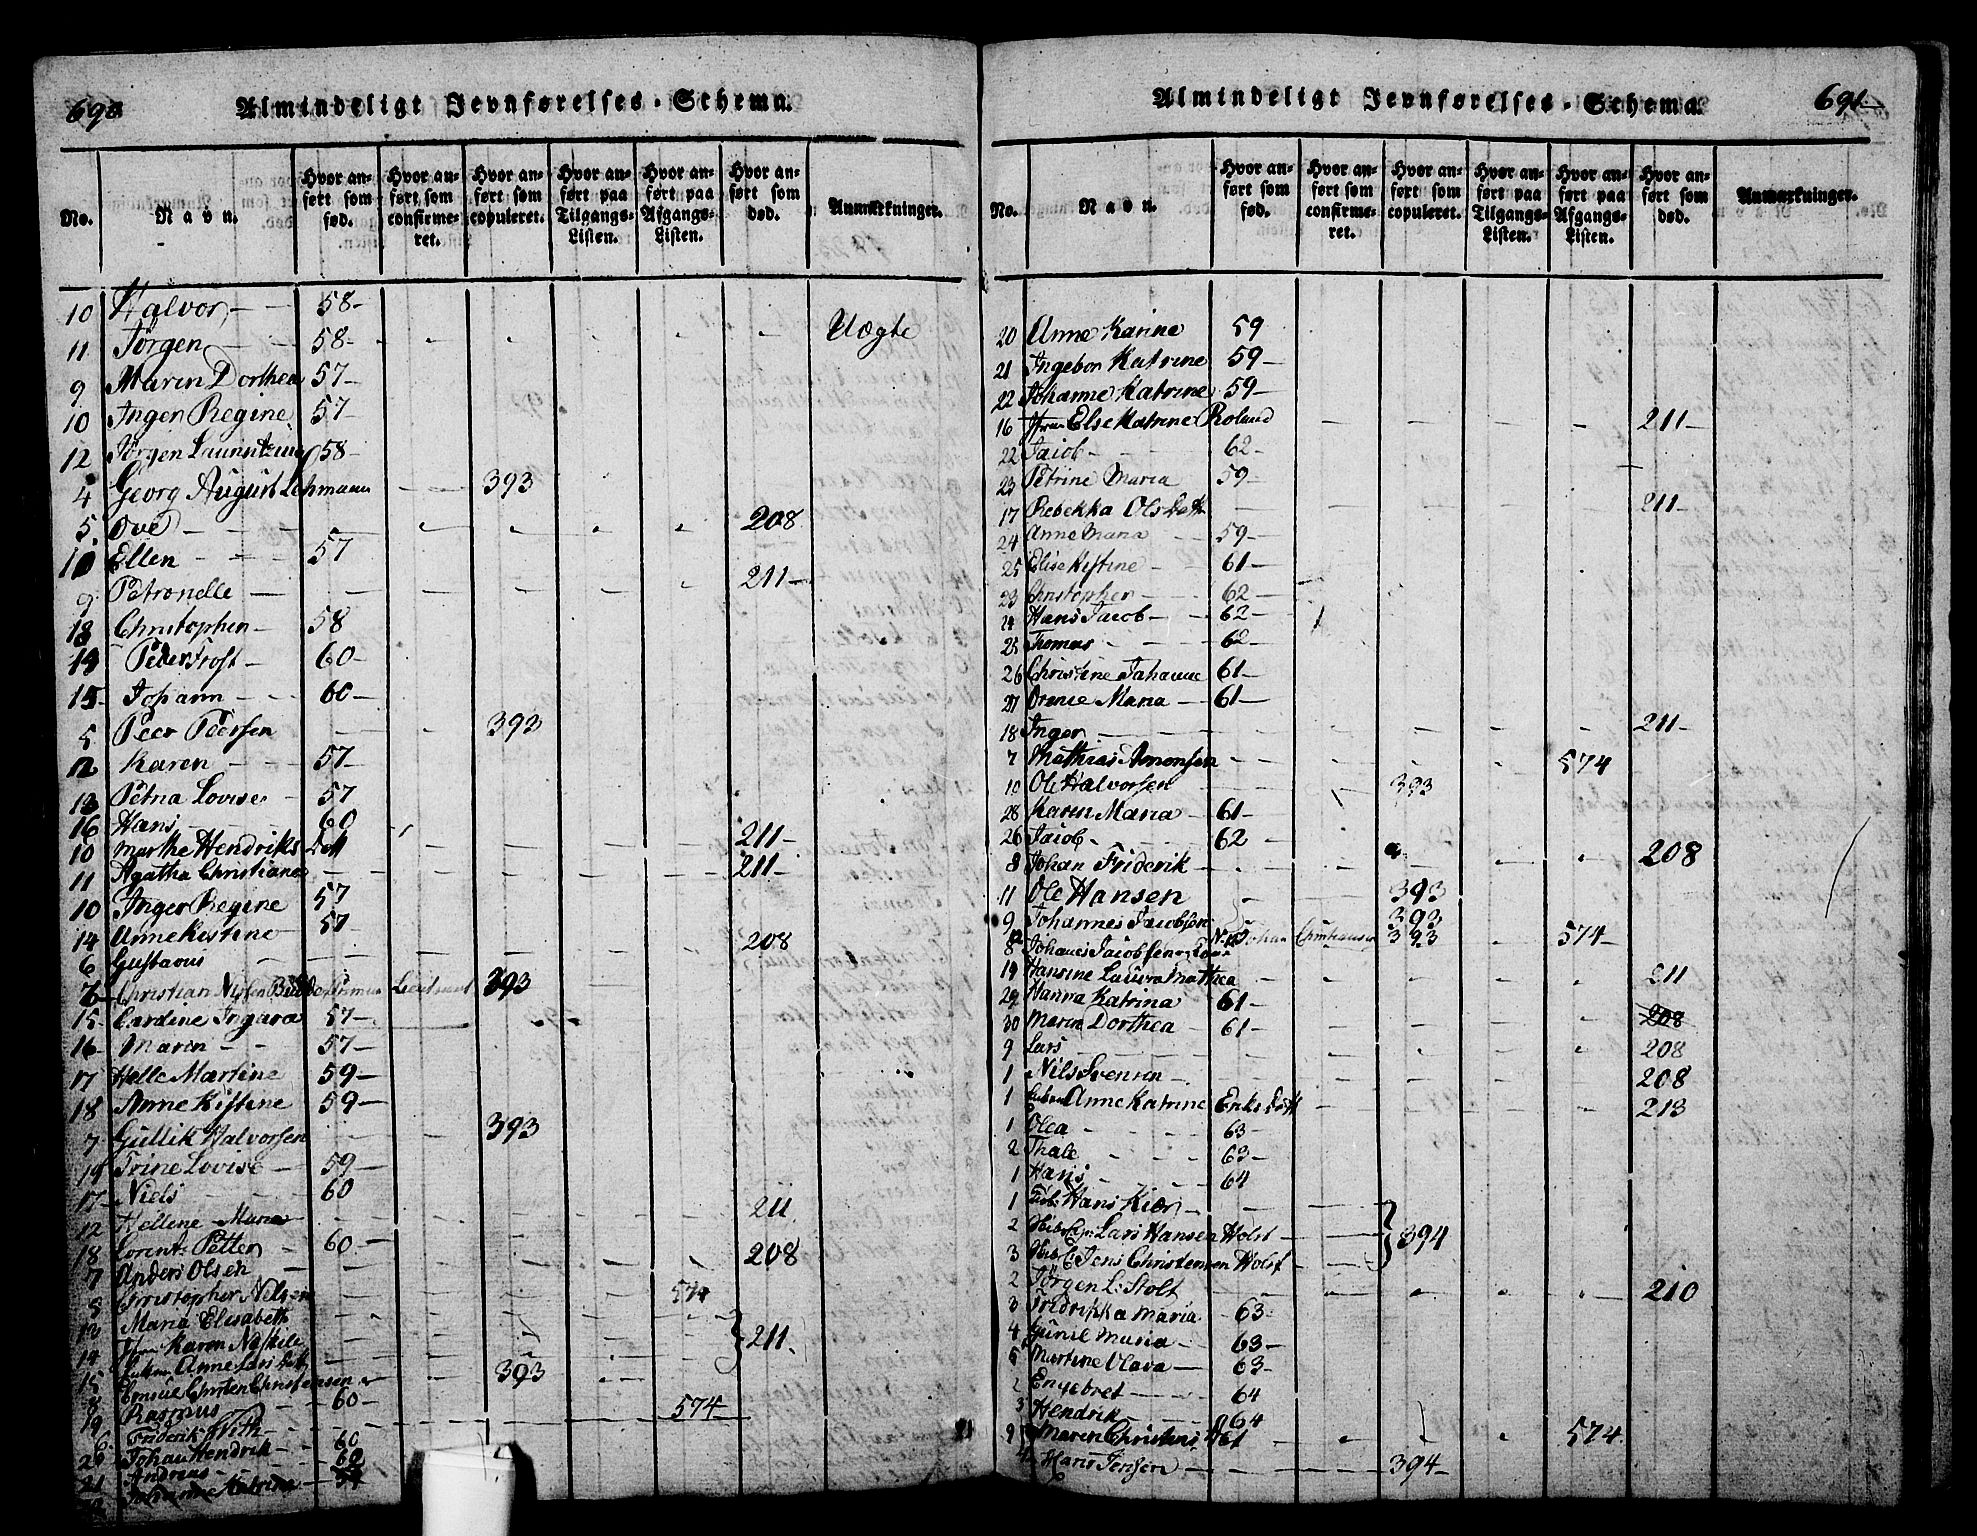 690
Almindeligt Jevnførelses-Schema.
No.
Navn.
Hvor anført som fød.
Hvor anført som confirmeret.
Hvor anført som copuleret.
Hvor anført paa Tilgangs-Listen.
Hvor anført paa Afgangs-Listen.
Hvor anført som død.
Anmerkninger.
10 Halvor 58
11 Jørgen 58 Uægte
9 Maren Dorthea 57
10 Inger Regine 57
12 Jørgen 58
4 Georg August Lehmann 393
5 Ove 208
Ellen 57
9 Petronelle 211
13 Christopher 58
14 Peder Trost 60
15 Johann 60
5 Peer Peersen 393
12 Karen 57
13 Petria Lovise 57
16 Hans 60
10 Marthe Hendriks Datt 211
11 Agatha Christiane 211
10 Inger Regine 57
14 Anne Kistine 57
6 Gustavus 208
Christian Lieutnant 393
15 Cardine Ingara 57
16 Maren 57
17 Helle Martine 59
18 Anne Kistine 59
7 Gullik Halvorsen 393
19 Trine Lovise 59
17 Niels 60
12 Hellene Maria 211
18 Lorents Petter 60
7 Anders Olsen 208
8 Christopher Nilsen 574
13 Maria Elisabeth
14 Karen 211
15 Anne Lars Datt
8 Christensen 393
19 Rasmus 60
6 Friderik With 574
20 Johan Hendrik 60
21 Andreas 60
Johanne Katrine 59
Almindeligt Jevnførelses-Schema.
691
No.
Navn.
Hvor anført som fød.
Hvor anført som confirmeret.
Hvor anført som copuleret.
Hvor anført paa Tilgangs-Listen.
Hvor anført paa Afgangs-Listen.
Hvor anført som død.
Anmerkninger.
20 Anne Karine 59
21 Ingebor Katrine 59
22 Johanne Katrine 59
16 Else Katrine Roland 211
22 Jacob 62
23 Petrine Maria 59
17 Rebekka Ols Datt 211
24 Anne Maria 59
25 Elise Kistine 61
23 Christopher 62
24 Hans Jacob 62
25 Thomas 62
26 Christine Johanne 61
27 Maria 61
18 Inger 211
7 Mathias Amonsen 574
10 Ole Halvorsen 393
28 Karen Maria 61
26 Jacob 62
8 Johan Friderik 208
11 Ole Hansen 393
9 Johannes Jacobsen 393
8 Johannes Jacobsen 393 574
19 Hansine Laura Mathea 211
29 Hanna Katrina 61
30 Maren Dorthea 61 208
9 Lars 208
1 Nils Svensen 208
1 Anne Katrine Eriks Datt 213
1 Olea 63
2 Thale 63
1 Hans 64
1 Hans Kiær
2 Lars Hansen Holst 394
3 Jens Christensen Holst
2 Jørgen L: Stolt 210
3 Fridrikka Maria 63
4 Gunil Maria 63
5 Martine Olava 63
2 Engebret 64
3 Hendrik 64
9 Maren Christens 61 574
4 Hans Jensen 394